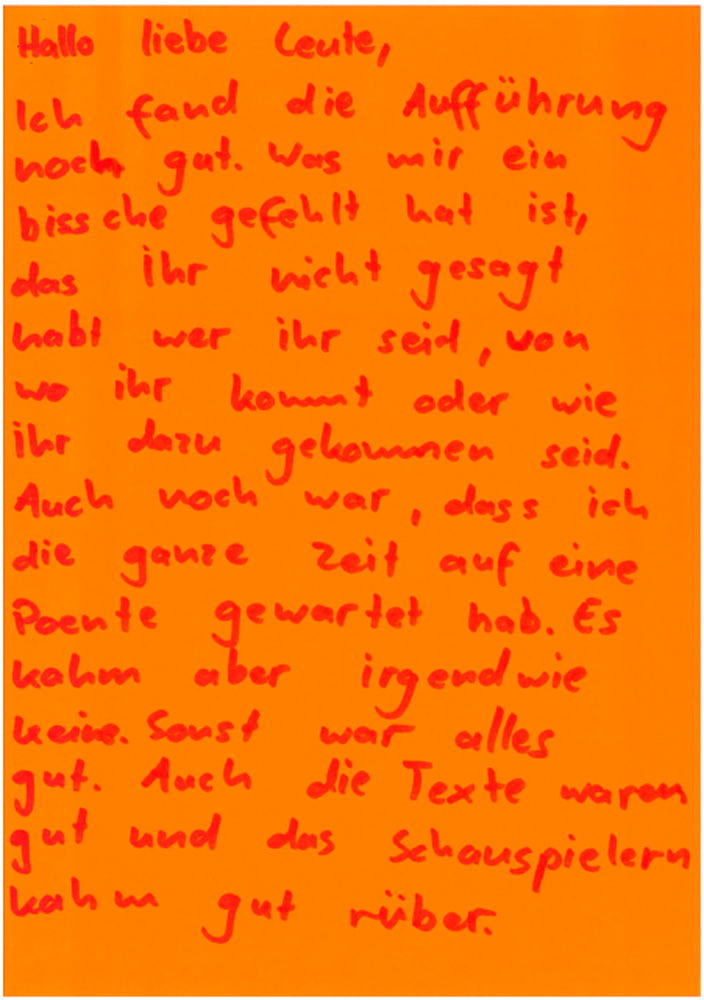 Hallo liebe Leute,
Ich fand die Aufführung
noch gut. Was mir ein
bissche gefehlt hat ist,
das Ihr nicht gesagt
habt wer ihr seid, von
wo ihr kommt oder wie
ihr dazu gekommen seid.
Auch noch war, dass ich
die ganze Zeit auf eine
Poente gewartet hab. Es
kahm aber irgendwie
keine. Sonst war alles
gut. Auch die Texte waren
gut und das Schauspielern
kahm gut rüber.